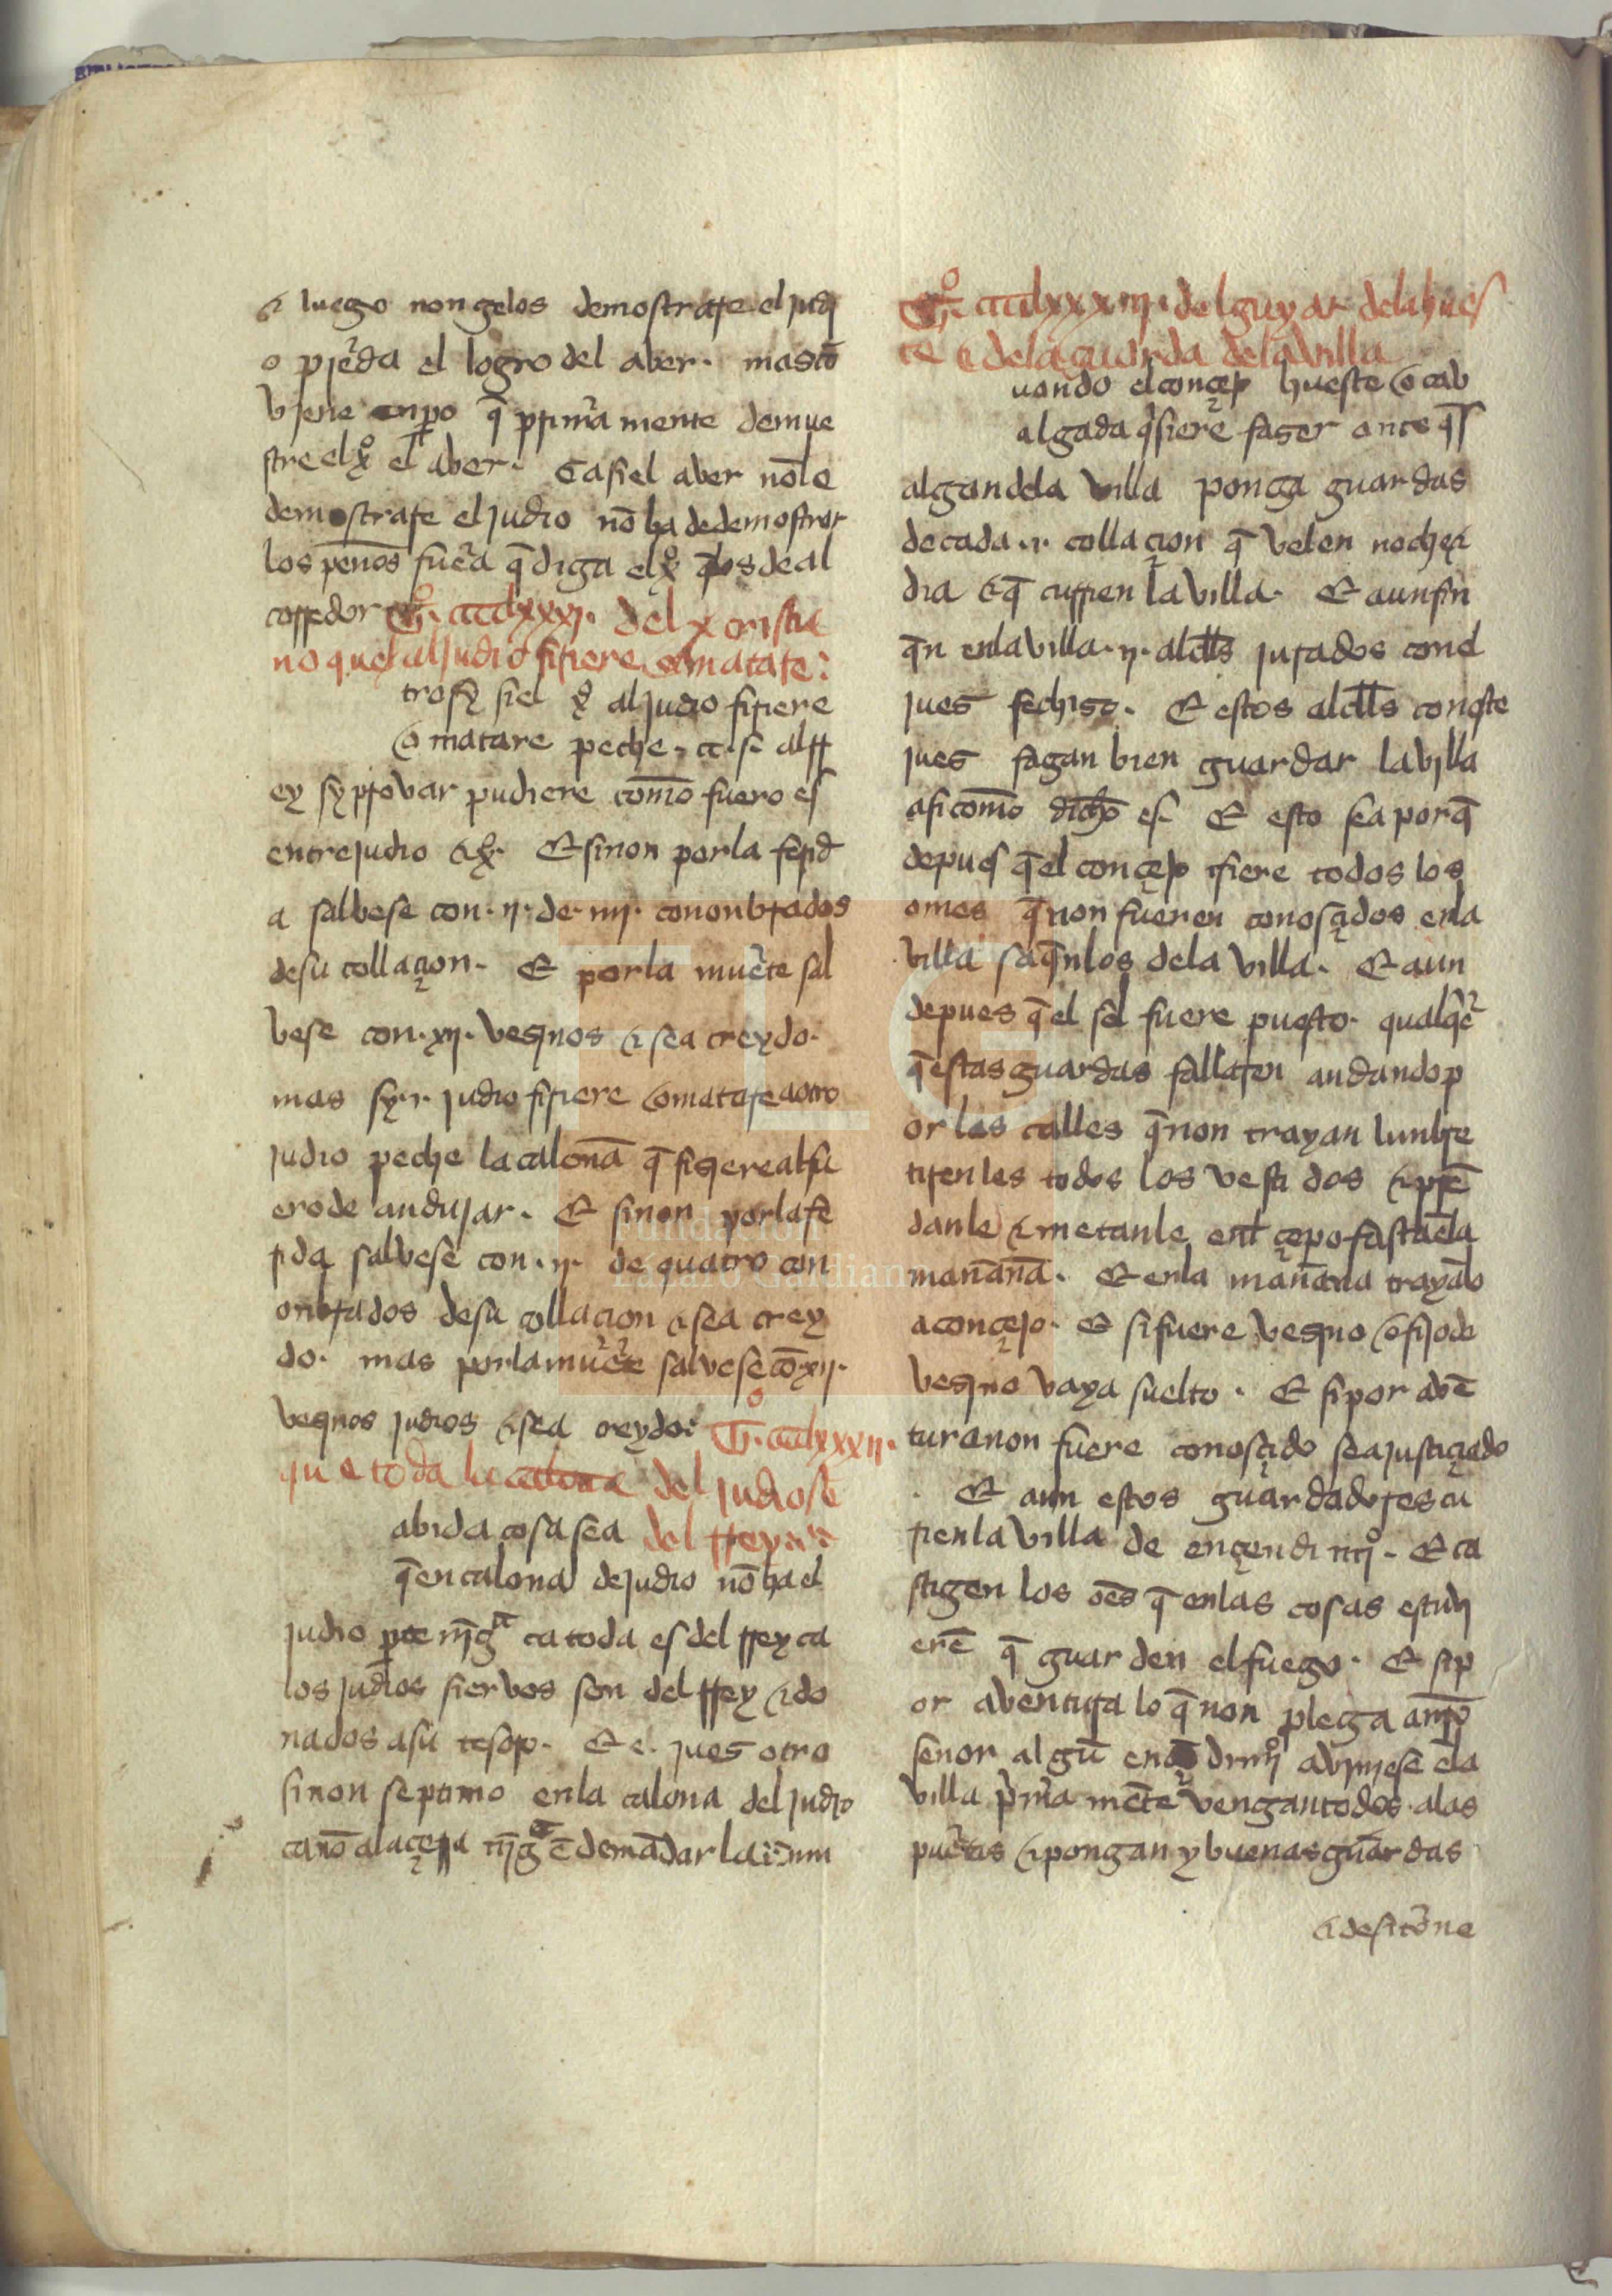 & luego non gelos demostrare el judi
o pierda el logro del aber. mas cō
viene enpero q̄ primera mente demue
stre el xº el aber. Ca si el aber nō le
demostrare el judio nō ha de demostrar
los peños fuera q̄ diga el xº q̄ los de al
corredor Tº. ccclxxxj. del x cristia
no que al judio firiere o matare:
trosy si el xº al judio firiere
o matare peche .cc. s. al rr
ey sy provar pudiere como fuero es
entre judio & xº. Et sinon por la ferid
a salvese con .ij. de .iiij. cononbrados
de su collaçion. Et por la muerte sal
vese con .xij. vesinos & sea creydo.
mas sy .i. judio firiere o matare a otro
judio peche la caloña q̄ fisiere al fu
ero de andujar. Et sinon por la fe
rida salvese con .ij. de quatro con
onbrados de su collacion & sea crey
do. mas por la muerte salvese cō .xij.
vesinos judios & sea creydo: Tº. ccclxxxij.
que toda la calona del judio sē
abida cosa sea del rrey:
q̄ en calona de judio nō ha el
judio parte nīgª ca toda es del rrey ca
los judios siervos son del rrey & do
nados a su tesoro. Et e. jues otro
sinon septimo en la calona del judio
ca nō al açe nīgª ē demādar la
Tº. ccclxxxiij. del guyar de la hues
te & de la guarda de la villa
uando el conçejo hueste o cab
algada q̄siere faser ante q̄ s
algan dela villa ponga guardas
de cada .i. collaçion q̄ velen noche &
dia & q̄ curien la villa. Et aun fin
q̄n en la villa .ij. alclls jurados con el
jues fechiso. Et estos alclls con este
jues fagan bien guardar la villa
asi como dicho es. Et esto sea por q̄
depues q̄ el conçejo fiere todos los
omes q̄ non fueren conosçidos en la
villa saq̄nlos dela villa. Et aun
depues q̄ el sol fuere puesto. qualq̄er
q̄ estas guardas fallaren andando p
or las calles q̄ non trayan lunbre
tirenles todos los vestidos & prē
danle & metanle en el çepo fasta en la
mañana. Et en la mañana trayālo
a conçejo. Et si fuere vesino o fijo de
vesino vaya suelto. Et si por avē
tura non fuere conosçido sea justiçiado
. Et aun estos guardadores cu
rien la villa de ençendimiº. Et ca
stigen los oēs q̄ en las cosas estudi
erē q̄ guarden el fuego. Et si p
or aventura lo q̄ non plega a nro
señor algū ençēdimiº aviniese en la
villa primera mēte vengan todos a las
puertas & pongan y buenas guardas
& desi torne